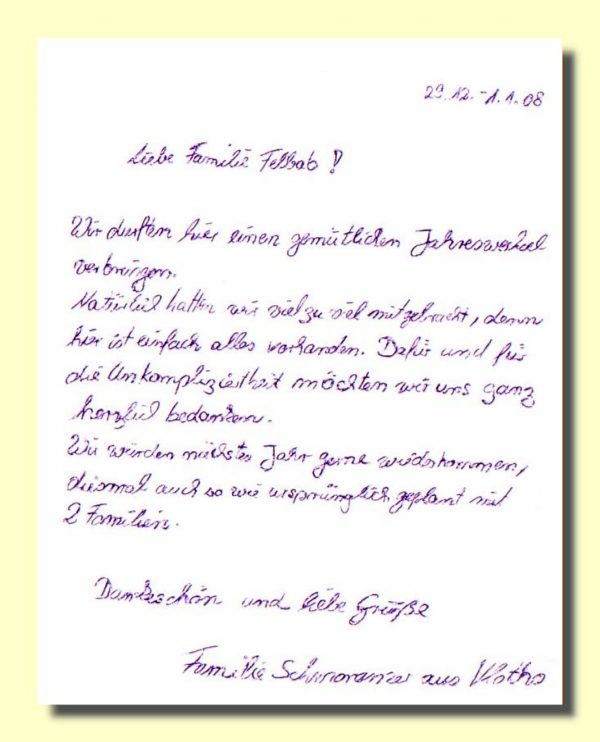 29.12.-1.1.08
Liebe Familie !
Wir durften hier einen gemütlichen Jahreswechsel
verbringen.
Natürlich hatten wir viel zu viel mitgebracht, denn
hier ist einfach alles vorhanden. Dafür und für
die Unkompliziertheit möchten wir uns ganz
herzlich bedanken.
Wir würden nächstes Jahr gerne wiederkommen,
diesmal auch so wie ursprünglich geplant mit
2 Familien.
Dankeschön und liebe Grüße
Familie aus